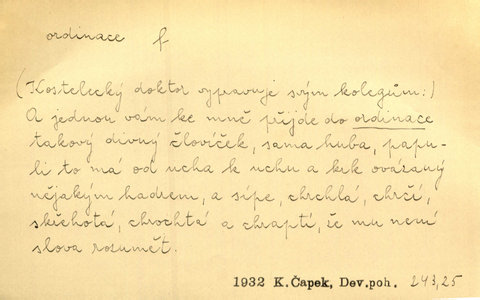 ordinace f
(Kostelecký doktor vypravuje svým kolegům:)
A jednou vám ke mně přijde do ordinace
takový divný človíček, sama huba, papu-
li to má od ucha k uchu a krk ovázaný
nějakým hadrem, a sípe, chrchlá, chrčí,
skřehotá, chrochtá a chraptí, že mu není
slova rozumět.
1932 K.Čapek, Dev.poh. 243,25